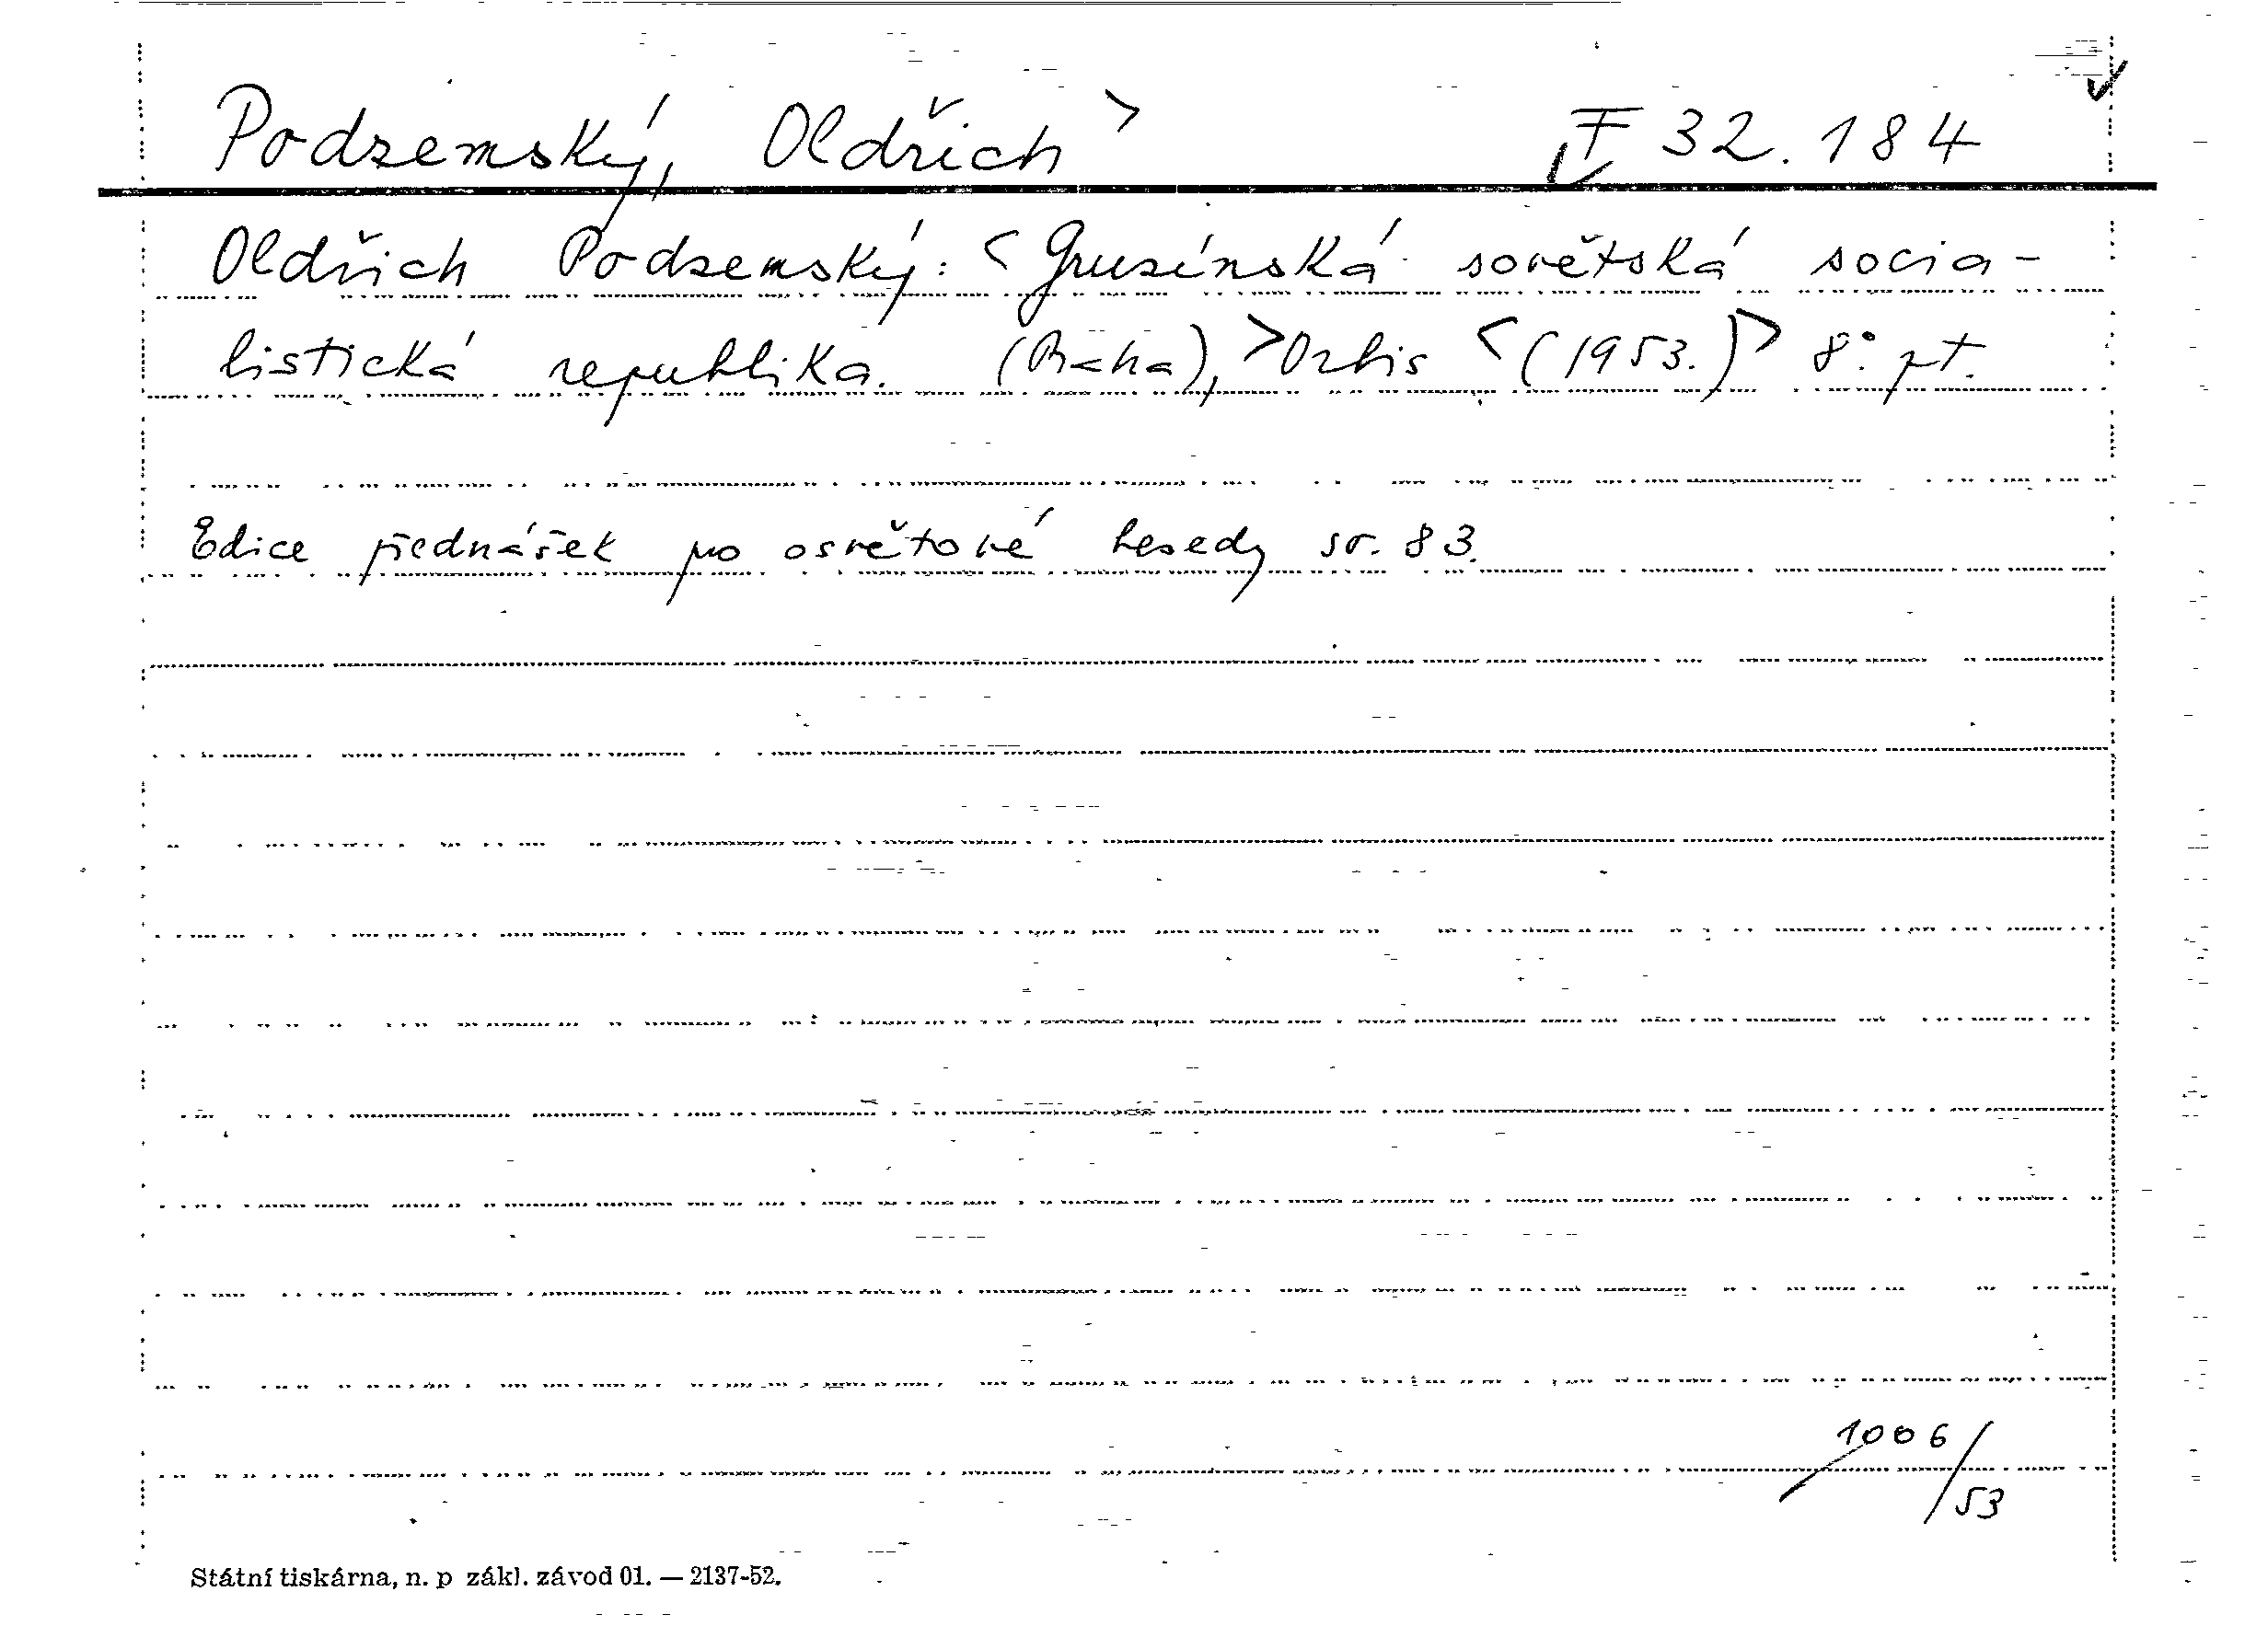 Podzemský, Oldřich > F 32.184
Oldřich Podzemský: < Grusínská sovětská socia-
listická republika. (Praha), > Orbis < (1953.) > 8°. pt.
Edice přednášek pro osvětové besedy sv. 83.
1006/53
Státní tiskárna, n. p zákl. závod 01. — 2137-52.